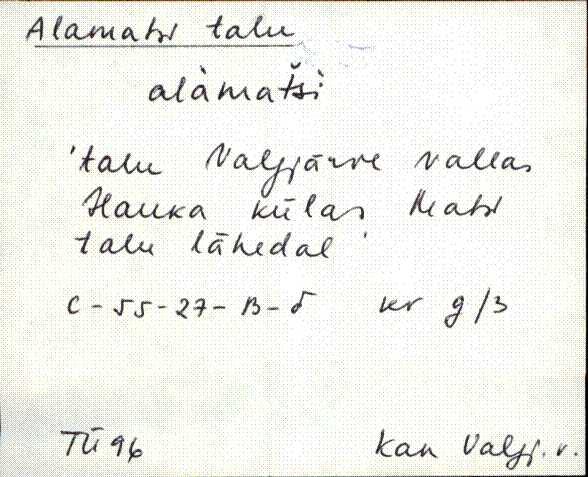 Alamatsi talu
alàmatši
'talu Valgjärve vallas
Hauka külas Matsi
talu lähedal'
C-55-27-B-б kr g/3
TÜ 96 Kan Valgj. v.